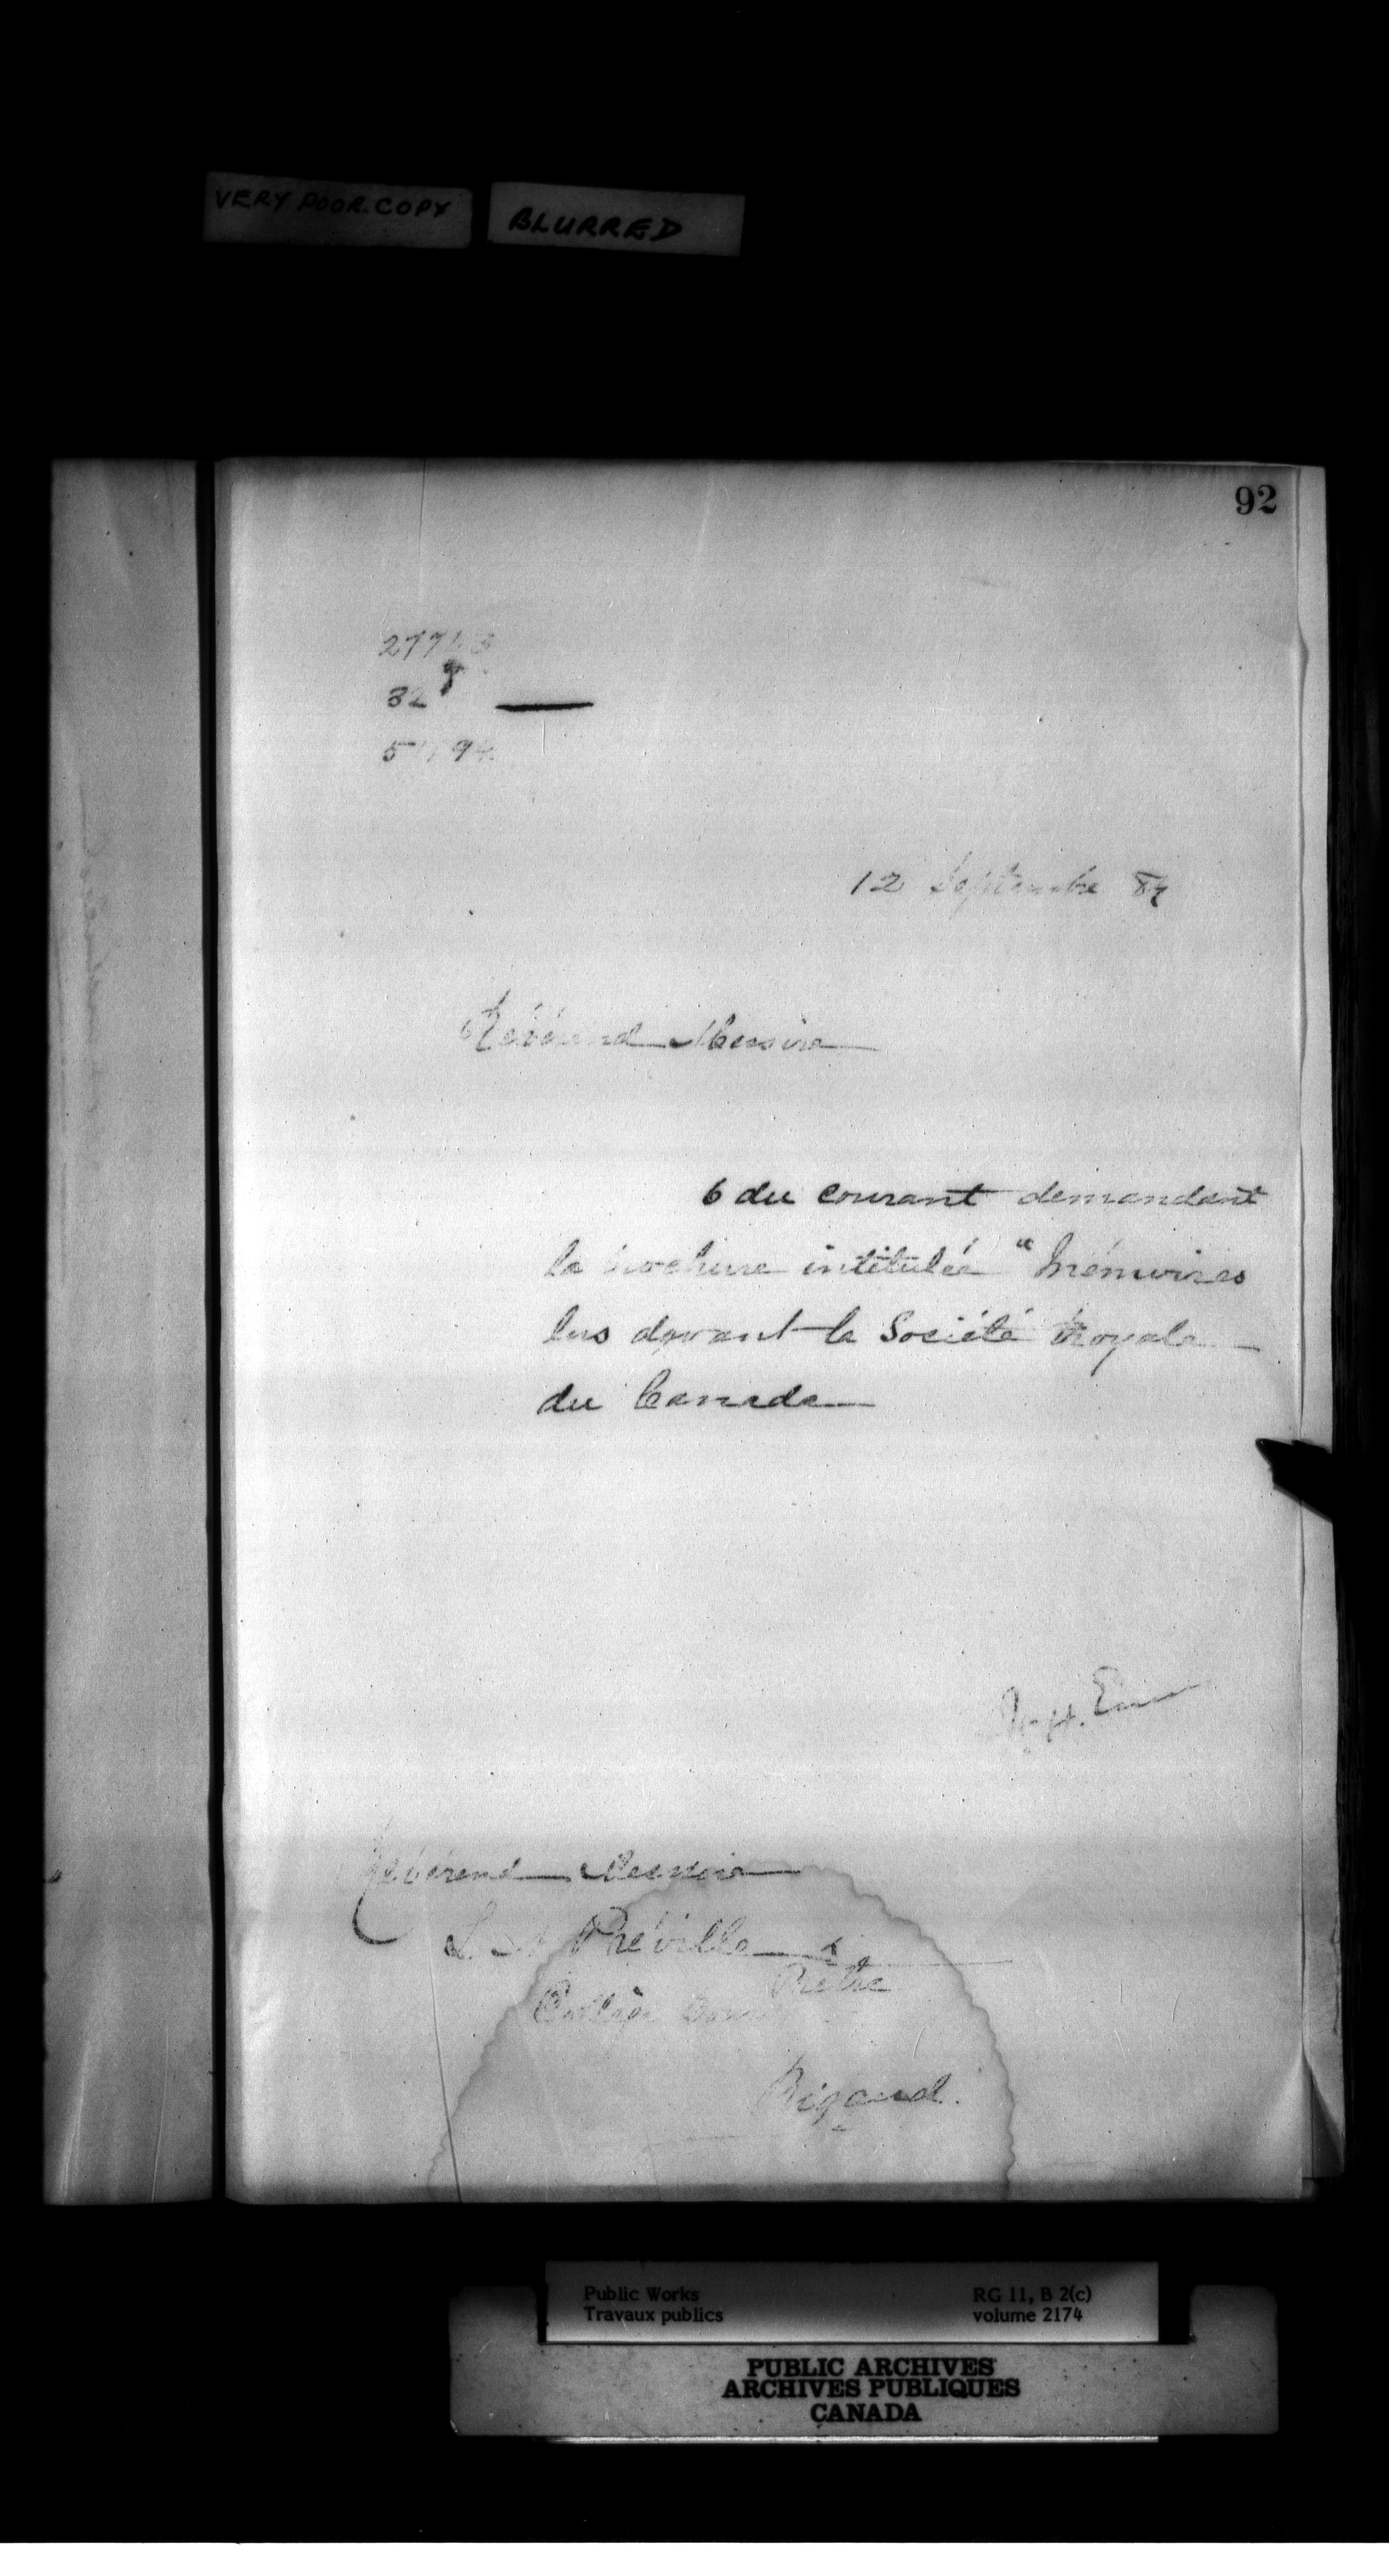 VERY POOR COPY
BLURRED
92
32
12 Septembre
Révérend Messire
6 du courant demandant
la brochure intitulée "Mémoires
lus devant la Société Royale
du Canada
Révérend Messire
Préville
Prêtre
Collège
Rigaud.
Public Works RG 11, B 2(c)
Travaux publics volume 2174
PUBLIC ARCHIVES
ARCHIVES PUBLIQUES
CANADA